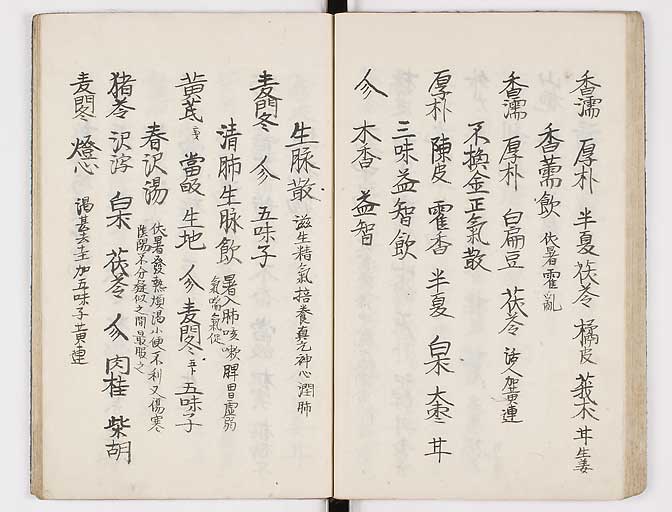 香濡 厚朴 半夏 茯苓 橘皮 莪朮 廾 生姜
香薷飲 伏暑霍乱
香濡 厚朴 白扁豆 茯苓 活人加黄連
不換金正氣散
厚朴 陳皮 霍香 半夏 白朮 大枣 廾
三味益智飲
㕘 木香 益智
生脉散 滋生精氣培養真元神心潤肺
麦門冬 㕘 五味子
清肺生脉飲 暑入肺咳嗽脾胃虚弱
氣喘氣促
黄芪 當皈 生地 㕘 麦門冬 五味子
春沢湯 伏暑發熱煩渇小便不利又傷寒
陰陽不分疑似之間最服之
猪苓 沢泻 白朮 茯苓 㕘 肉桂 柴胡
麦門冬 燈心 渇甚去圭加五味子黄連